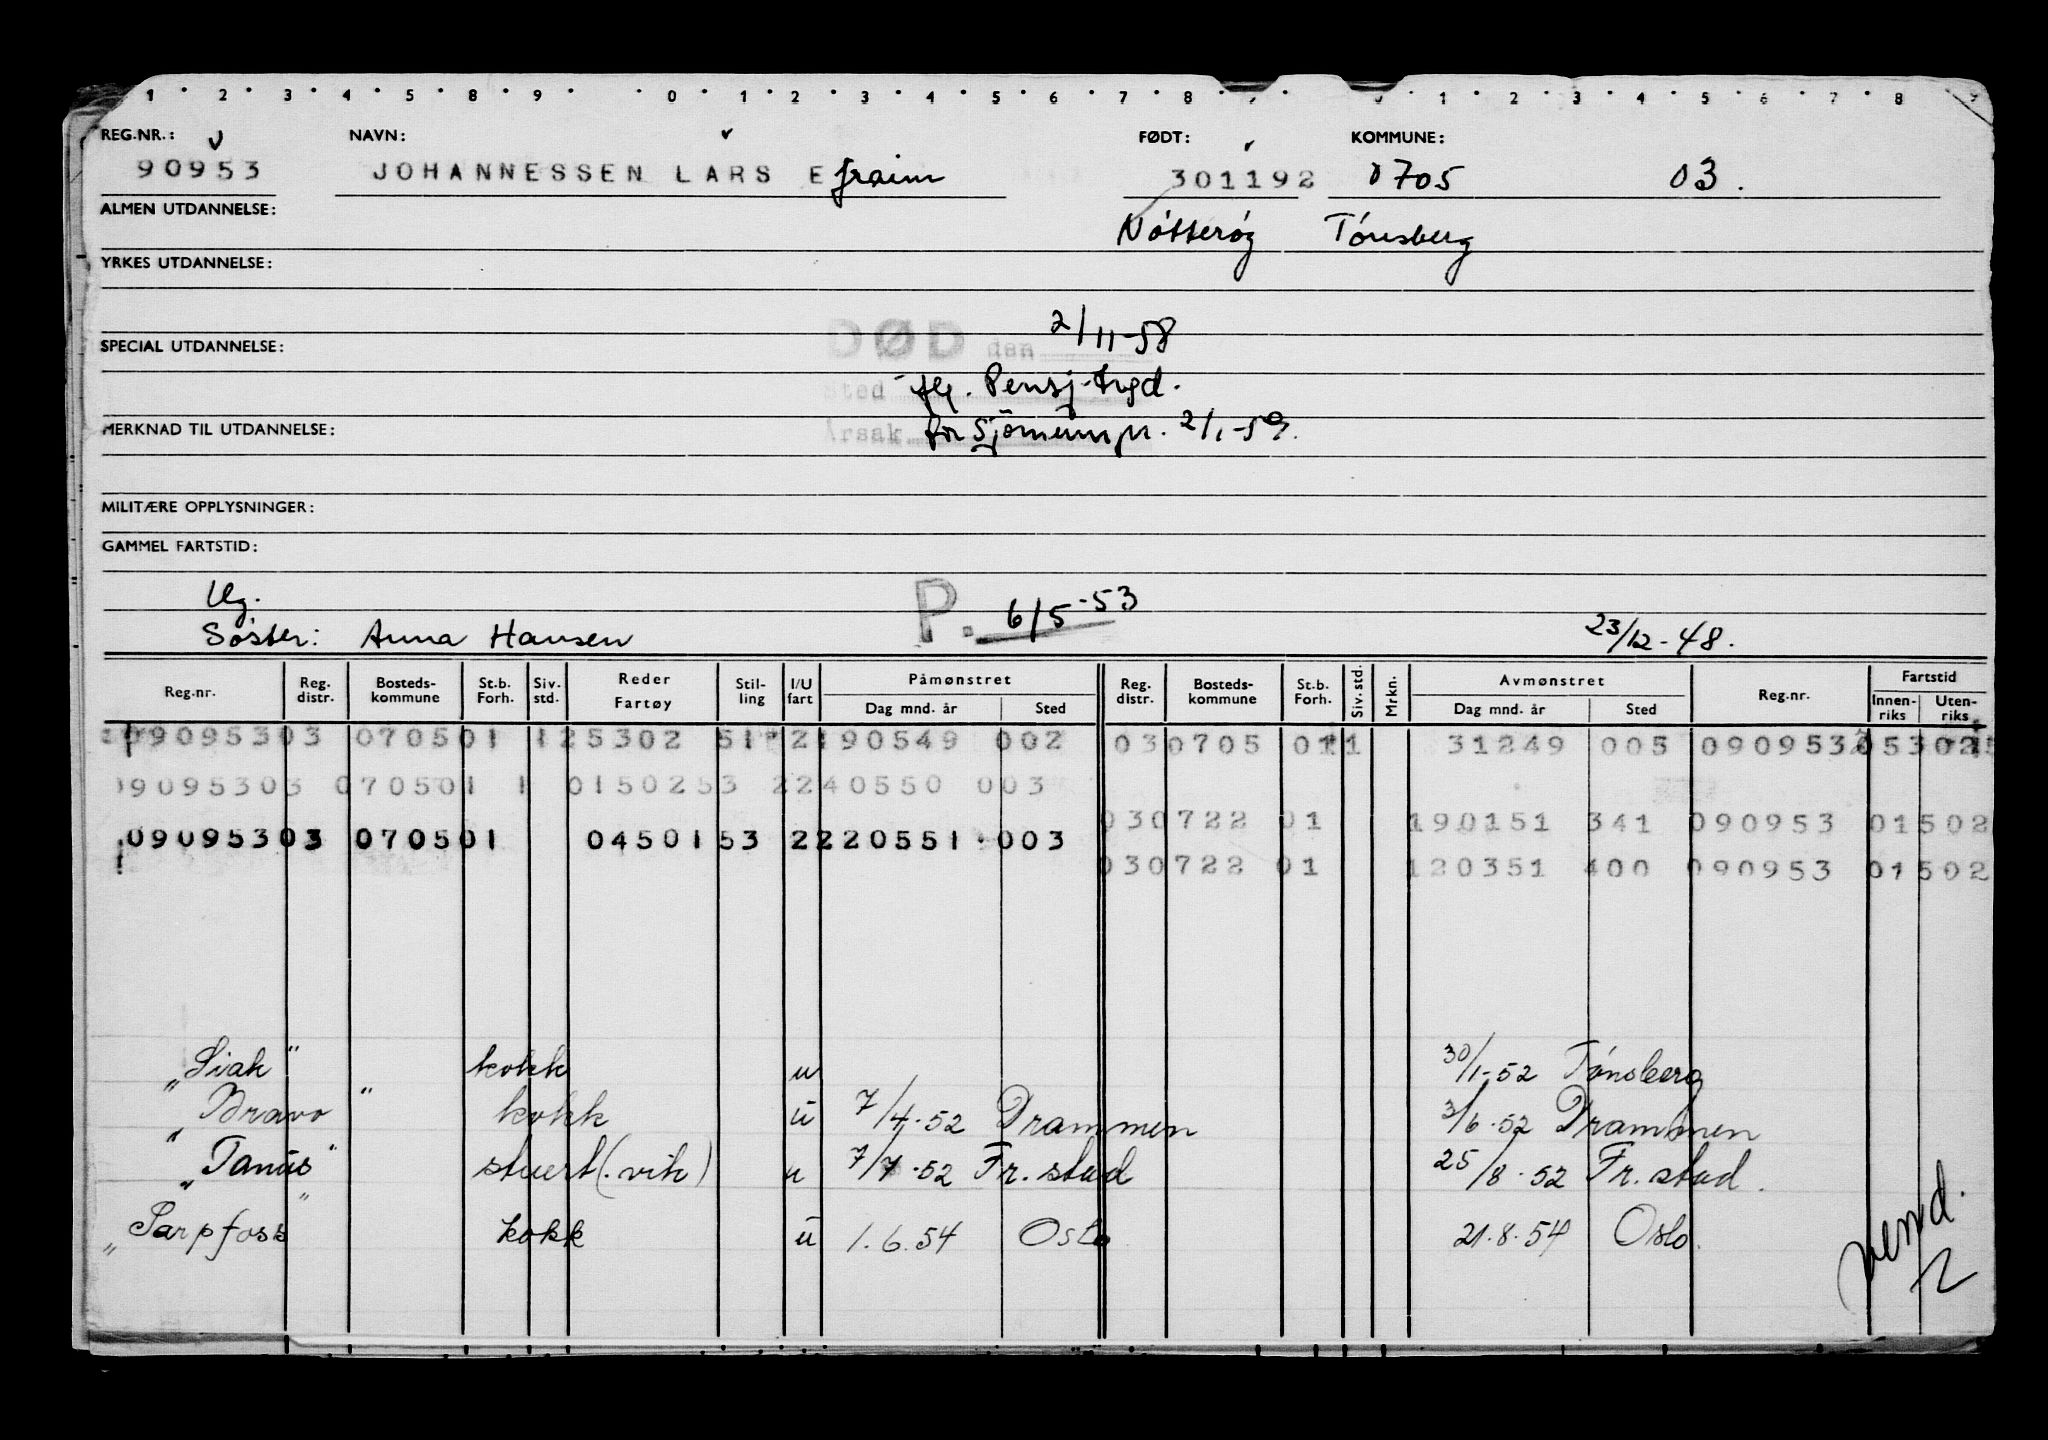 1 2 3 4 5 8 9 0 1 2 3 4 5 6 7 8 1 2 3 4 5 6 7 8 9
REG.NR.: NAVN: FØDT: KOMMUNE:
90953 JOHANNESSEN LARS Efraim 301192 0705 03.
ALMEN UTDANNELSE: Nøtterøy Tönsberg
YRKES UTDANNELSE:
DØD den 2/11-58
SPECIAL UTDANNELSE:
Sted flg. Pensj.trygd.
MERKNAD TIL UTDANNELSE: Årsak for Sjömenn pr. 2/1-59.
MILITÆRE OPPLYSNINGER:
GAMMEL FARTSTID:
Ug. P. 6/5-53
Søster: Anna Hansen 23/12-48.
Reg.nr. Reg. distr. Bosteds-kommune St.b. Forh. Siv. std. Reder Fartøy Stil-ling I/U fart Påmønstret Dag mnd. år Sted Reg. distr. Bosteds-kommune St.b. Forh. Siv. std. Mrkn. Avmønstret Dag mnd. år Sted Reg.nr. Fartstid Innen-riks Uten-riks
09095303 070501 125302 51 2190549 002 030705 011 31249 005 090953 05302
09095303 070501 1 0150253 2240550 003
030722 01 190151 341 090953 01502
09095303 070501 0450153 2220551 003
030722 01 120351 400 090953 01502
"Siak" kokk u 30/1-52 Tönsberg
"Bravo" kokk u 7/4.52 Drammen 3/6.52 Drammen
"Tanus" stuert (.vik) u 7/7.52 Fr.stad 25/8.52 Fr.stad.
"Sarpfoss" kokk u 1.6.54 Oslo 21.8.54 Oslo.
vend.